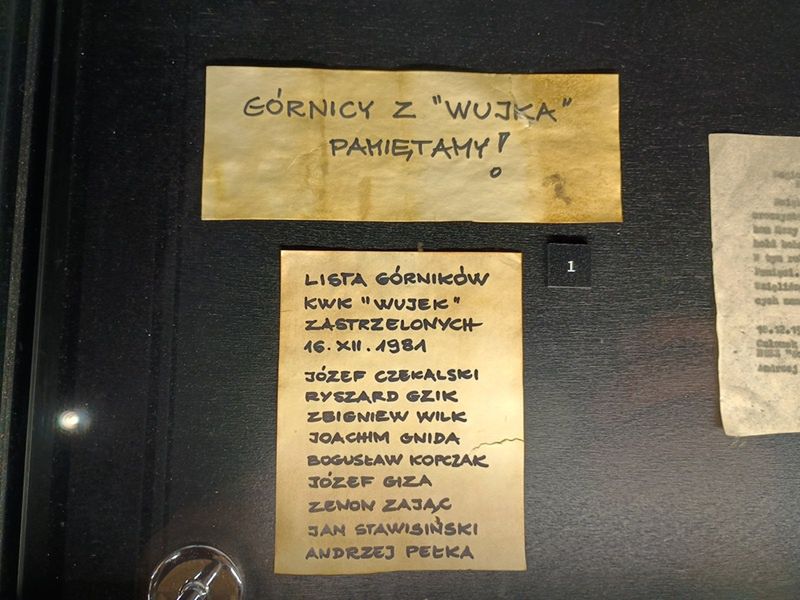 GÓRNICY Z "WUJKA"
PAMIĘTAMY!
LISTA GÓRNIKÓW
KWK "WUJEK"
ZASTRZELONYCH
16.XII.1981
JÓZEF CZEKALSKI
RYSZARD GZIK
ZBIGNIEW WILK
JOACHIM GNIDA
BOGUSŁAW KOPCZAK
JÓZEF GIZA
ZENON ZAJĄC
JAN STAWISIŃSKI
ANDRZEJ PEŁKA
1
Andrzej